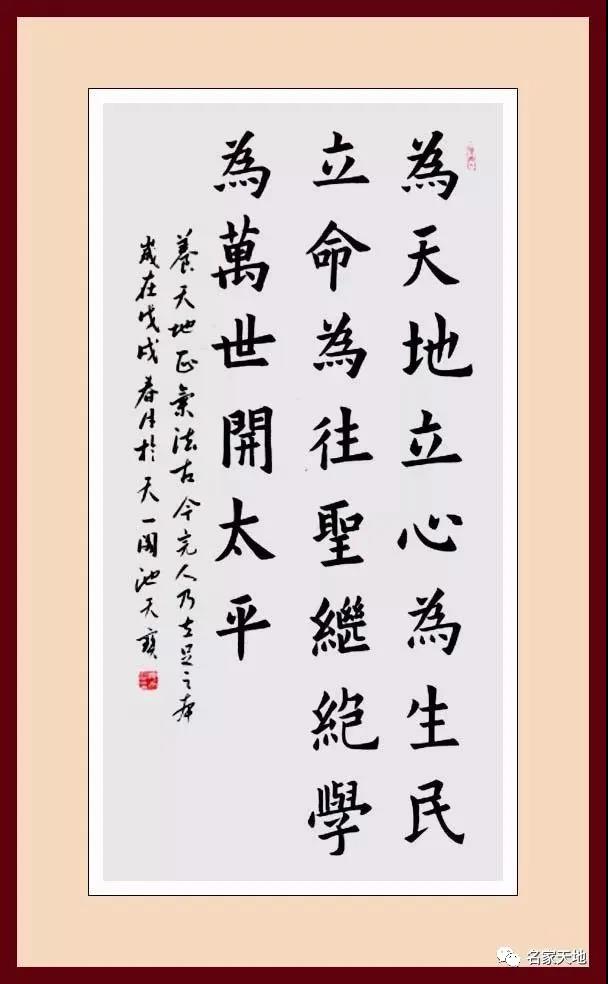 為天地立心為生民
立命為往聖繼絶學
為萬世開太平
養天地正氣法古今完人乃立足之本
歲在戊戌春月於天一閣池天寶
名家天地